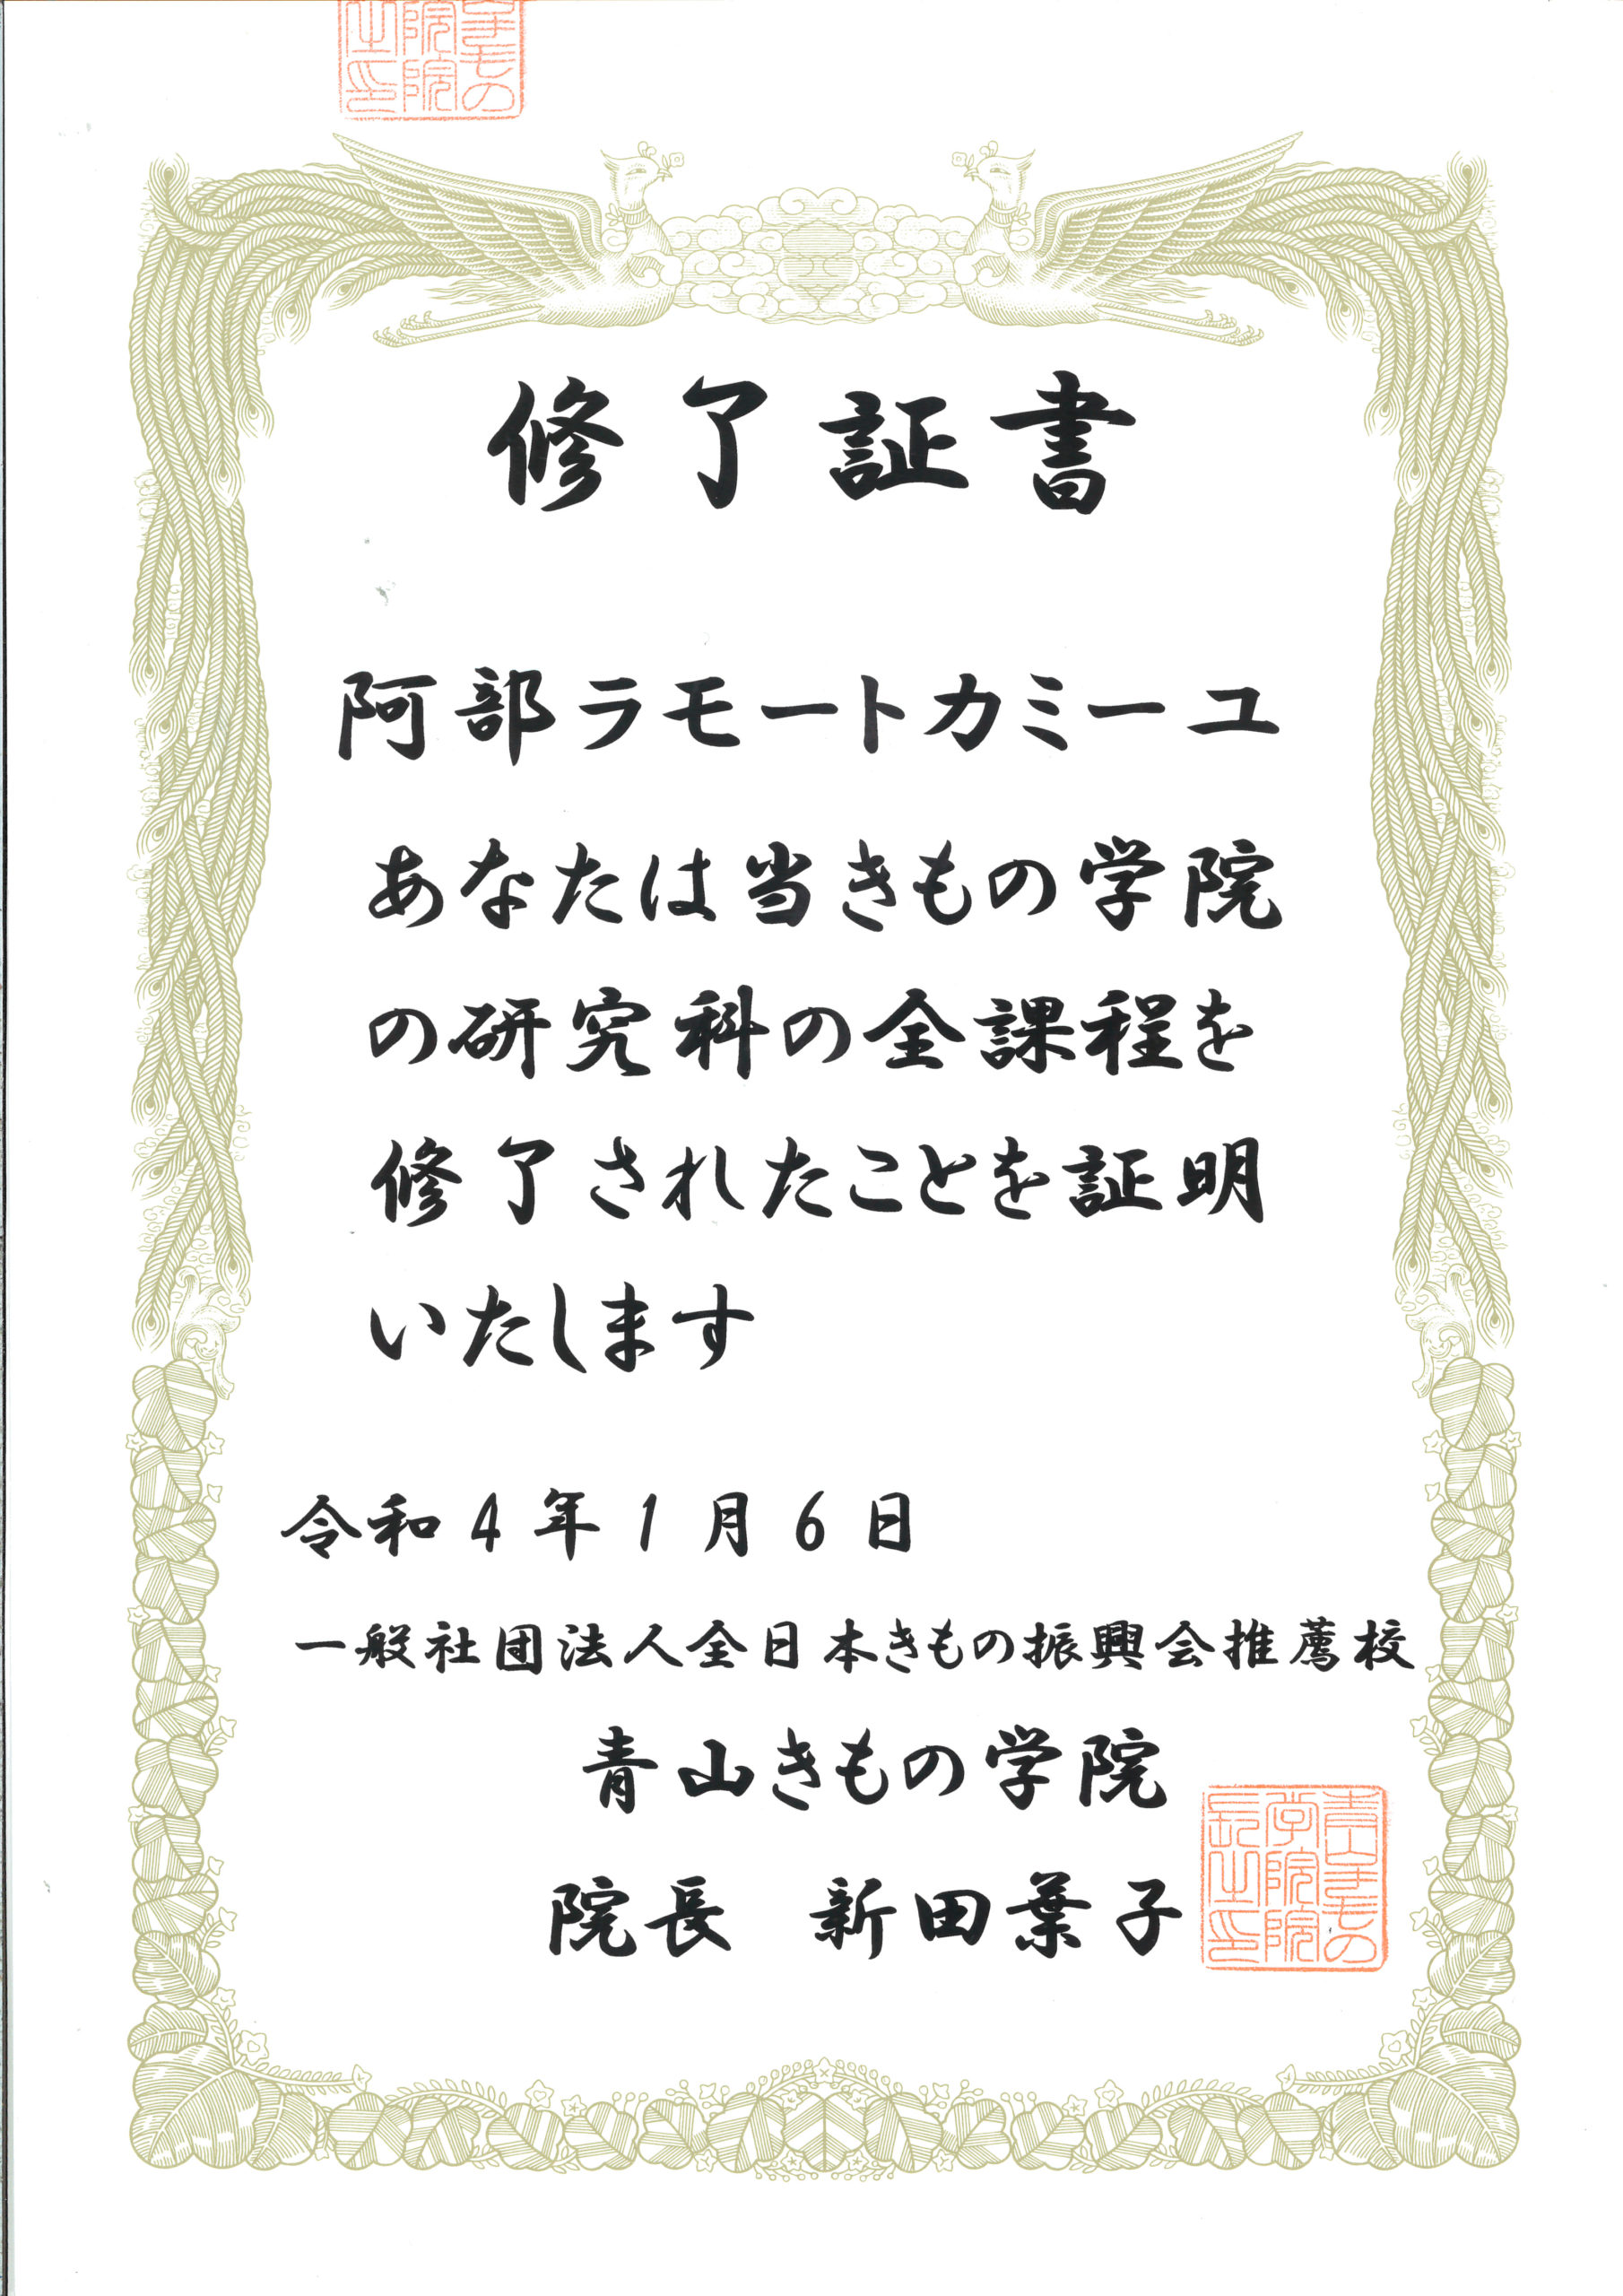 修了証書
阿部ラモートカミーユ
あなたは当きもの学院
の研究科の全課程を
修了されたことを証明
いたします
令和4年1月6日
一般社団法人全日本きもの振興会推薦校
青山きもの学院
院長 新田葉子
青山きもの学院院長之印